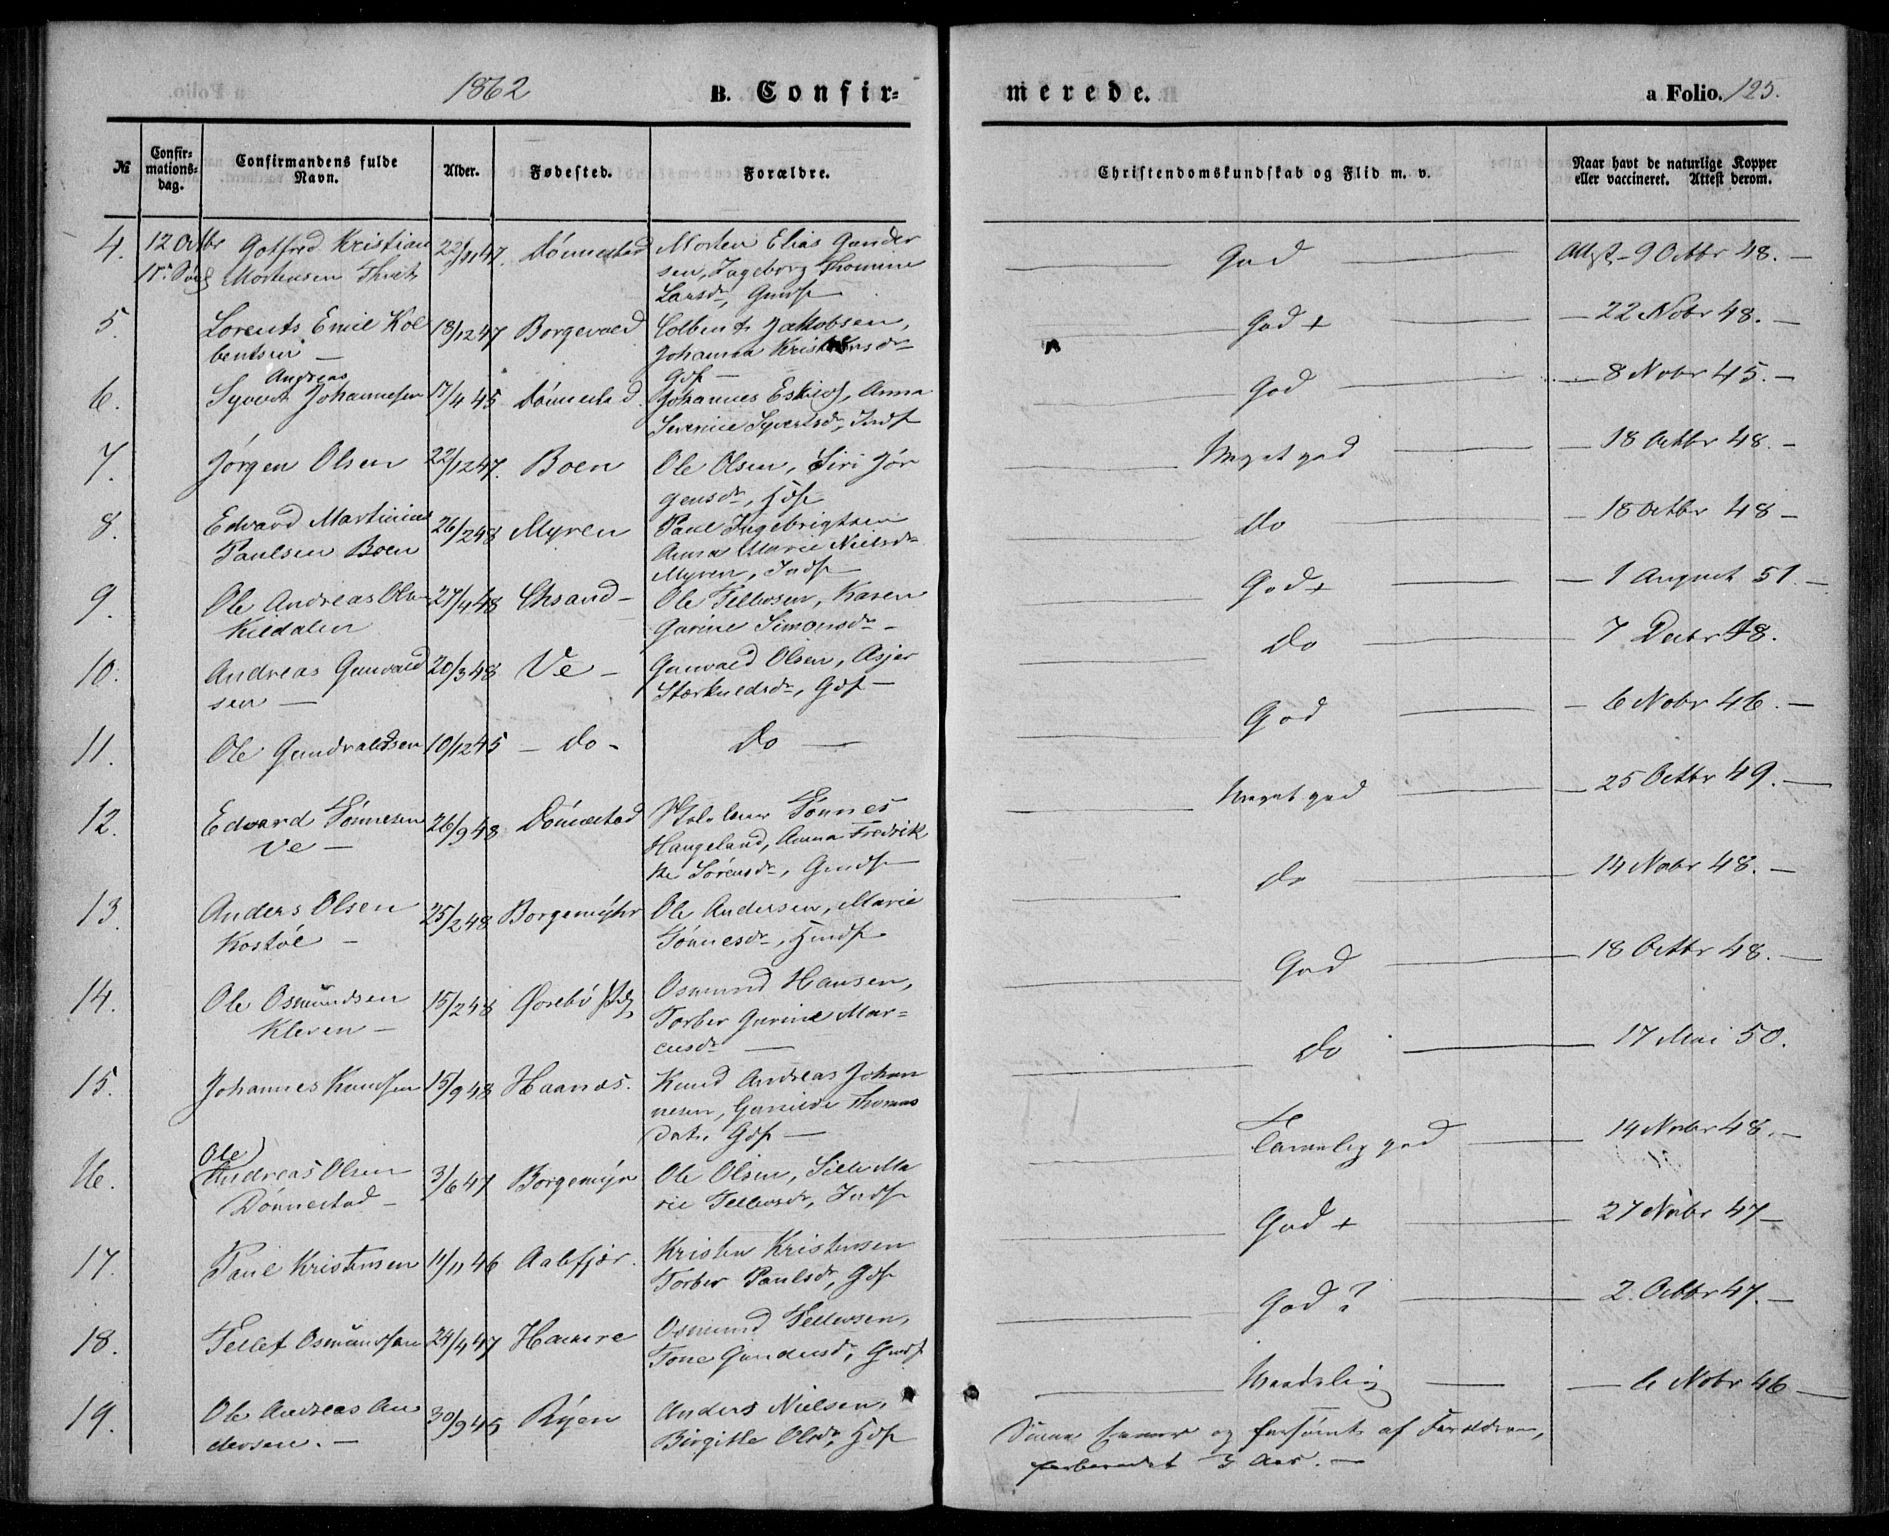 1862 B. Confir= merede. a Folio. 125.
№ Confir=mations=dag. Confirmandens fulde Navn. Alder. Fødested. Forældre. Christendomskundskab og Flid m. v. Naar havt de naturlige Kopper eller vaccineret. Attest derom.
4. 12 Octbr Gotfred Kristian 22/11 47. Dønnestad Morten Elias Gunder
Mortensen sen, Ingeborg Thomine God Attest 9 Octbr 48. —
Larsd
5. Lorents Emil Kol 18/12 47 Borgevold Colbent Jakobsen, God + — 22 Nobr 48. —
bentsen — Johanna
Gdf —
Andreas
6. Syvert Johannesen 17/4 45 Dønnestad. Johannes Eskilds, Anna God — 8 Nobr 45. —
Severine Syvertsdr, Indf
7. Jørgen Olsen 22/12 47. Boen Ole Olsen, Siri Jør Meget god — 18 Octbr 48. —
gensdr, Hdf
8. Edvard Martinius 26/2 48 Myren Paul Ingebrigtsen do — 18 Octbr 48 —
Paulsen Boen Anna Marie Nielsdr
Myren, Indf
9. Ole Andreas Olsen 27/4 48 Chsand — Ole Tellevsen, Karen God + — 1 August 51. —
Kildalen Gurine Simonsdr —
10. Andreas Gunvald 20/3 48 Ve — Gunvald Olsen, Asjer do 7 Decbr 48.
sen — Stærkuldsdr, Gdf —
11. Ole Gundvaldsen 10/12 45 — do — do — God — 6 Nobr 46. —
12. Edvard Tønnesen 26/9 48 Dønnestad Tønnes Meget god 25 Octbr 49. —
Ve — Haugeland, Anna Fredrik
ke Sørensdr, Gmdf —
13. Anders Olsen 25/2 48 Borgemyhr Ole Andersen, Marie do 14 Nobr 48. —
Kostøl — Tønnesdr, Hmdf
14. Ole Osmundsen 15/2 48 Øvrebø Osmund Hansen, God 18 Octbr 48. —
Kleven — Torber Gurine Mar=
cusdr —
15. Johannes Knudsen 15/9 48 Haanes. Knud Andreas Johan do 17 Mai 50.
nesen, Gunilde Thomas
datr. Gdf —
Ole
16. Andreas Olsen 3/6 47 Borgemyr Ole Olsen, Sille Ma Temmelig god 14 Nobr 48. —
Dønnestad — rie Tellevsdr, Indf
17. Paul Kristensen 11/11 46 Aalefjær. Kristen Kristensen God + 27 Nobr 47 —
Torber Paulsdr, Gdf
18. Tellef Osmundsen 24/4 47 Hamre Osmund Tellevsen, God ? 2. Octbr 47. —
Tone Gundersdr, Gmdf
19. Ole Andreas An 30/9 45 Ryen Anders Nielsen, Maadelig — 6 Nobr 46 —
dersen. — Birgitte Olsdr, Hdf
og forsømt af Forældrene,
forberedet 3 Aar. —